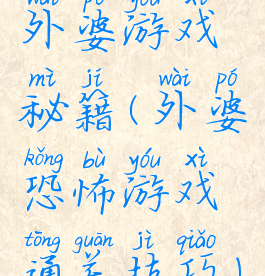 wài pó yóu xì
外婆游戏
mì jí wài pó
秘籍(外婆
kǒng bù yóu xì
恐怖游戏
tōng guān jì qiǎo
通关技巧)